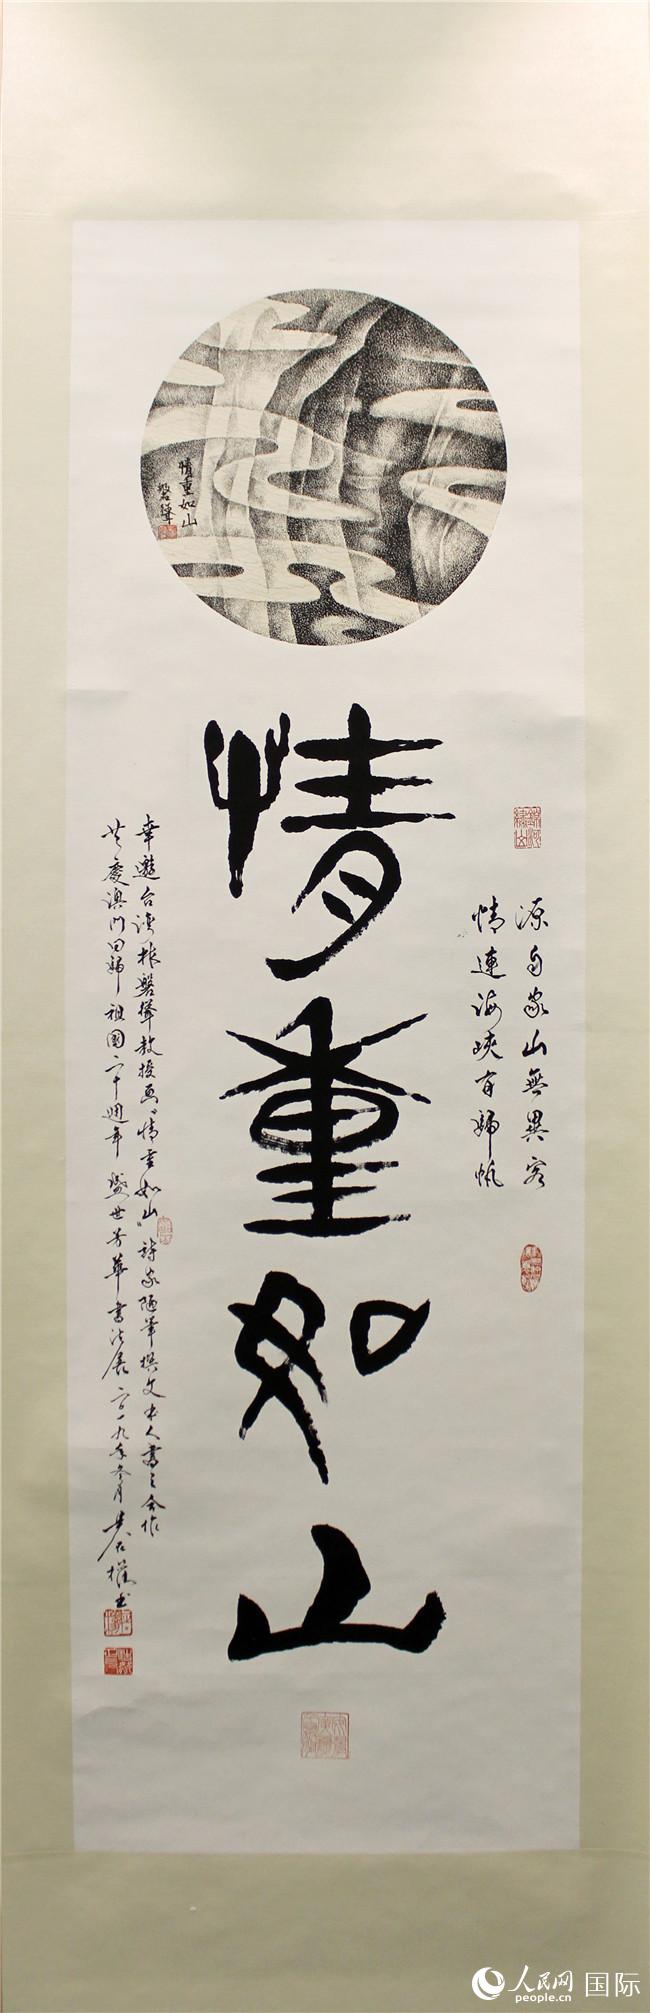 情重如山
磐鋒
情重如山
源自家山無異客
情連海峽有歸帆
幸邀台灣林磐聳教授画"情重如山"詩家陋筆撰文本人書之合作
共慶澳門回歸祖國二十週年盛世芳華書法展二〇一九年冬月
人民网 国际
people.cn